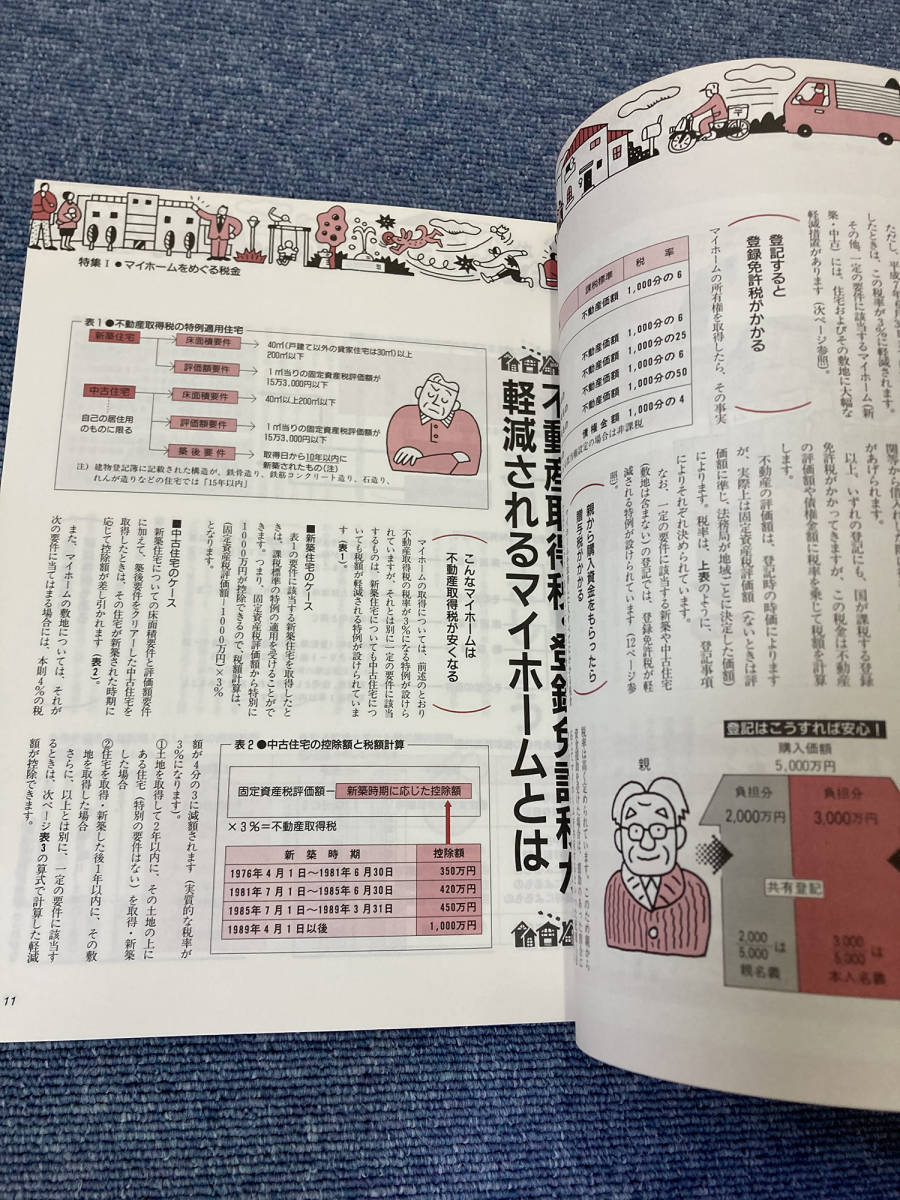 ただし、平成7年6月3
したときは、この税率が3%に軽減されます。
その他、一定の要件に該当するマイホーム（新
築・中古）には、住宅およびその敷地に大幅な
軽減措置があります（次ページ参照）。
登記すると
登録免許税がかかる
マイホームの所有権を取得したら、その事実
課税標準 税率
不動産価額 1,000分の6
不動産価額 1,000分の6
不動産価額 1,000分の25
不動産価額 1,000分の6
不動産価額 1,000分の50
債権金額 1,000分の4
設定の場合は非課税
関等から借入れし
があげられます。
以上、いずれの登記にも、国が課税する登録
免許税がかかってきますが、この税金は不動産
の評価額や債権金額に税率を乗じて税額を計算
します。
不動産の評価額は、登記時の時価によります
が、実際上は固定資産税評価額（ないときは評
価額に準じ、法務局が地域ごとに決定した価額）
によります。税率は、上表のように、登記事項
によりそれぞれ決められています。
なお、一定の要件に該当する新築や中古住宅
（敷地は含まない）の登記では、登録免許税が軽
減される特例が設けられています（12ページ参
照）。
親から購入資金をもらったら
贈与税がかかる
登記はこうすれば安心！
購入価額
5,000万円
親
負担分
2,000万円
負担分
3,000万円
共有登記
2,000
5,000は
親名義
3,000
5,000は
本人名義
特集Ⅰ●マイホームをめぐる税金
軽減されるマイホームとは
表1●不動産取得税の特例適用住宅
新築住宅
床面積要件
40㎡（戸建て以外の貸家住宅は30㎡）以上
200㎡以下
評価額要件
1㎡当りの固定資産税評価額が
15万3,000円以下
中古住宅
自己の居住用
のものに限る
床面積要件
40㎡以上200㎡以下
評価額要件
1㎡当りの固定資産税評価額が
15万3,000円以下
築後要件
取得日から10年以内に
新築されたもの（注）
注）建物登記簿に記載された構造が、鉄骨造り、鉄筋コンクリート造り、石造り、
れんが造りなどの住宅では「15年以内」
こんなマイホームは
不動産取得税が安くなる
マイホームの取得については、前述のとおり
不動産取得税の税率が3%になる特例が設けら
れていますが、それとは別に一定の要件に該当
するものは、新築住宅についても中古住宅につ
いても税額が軽減される特例が設けられていま
す（表1）。
■新築住宅のケース
表1の要件に該当する新築住宅を取得したと
きは、課税標準の特例の適用を受けることがで
きます。つまり、固定資産税評価額から特別に
1000万円が控除できるので、税額計算は、
（固定資産税評価額－1000万円）×3%
となります。
■中古住宅のケース
新築住宅についての床面積要件と評価額要件
に加えて、築後要件をクリアーした中古住宅を
取得したときは、その住宅が新築された時期に
応じて控除額が差し引かれます（表2）。
また、マイホームの敷地については、それが
次の要件に当てはまる場合には、本則4%の税
額が4分の3に減額されます（実質的な税率が
3%になります）。
①土地を取得して2年以内に、その土地の上に
ある住宅（特別の要件はない）を取得・新築
した場合
②住宅を取得・新築した後1年以内に、その敷
地を取得した場合
さらに、以上とは別に、一定の要件に該当す
るときは、次ページ表3の算式で計算した軽減
額が控除できます。
表2●中古住宅の控除額と税額計算
固定資産税評価額－新築時期に応じた控除額
×3%＝不動産取得税
新築時期 控除額
1976年4月1日～1981年6月30日 350万円
1981年7月1日～1985年6月30日 420万円
1985年7月1日～1989年3月31日 450万円
1989年4月1日以後 1,000万円
11